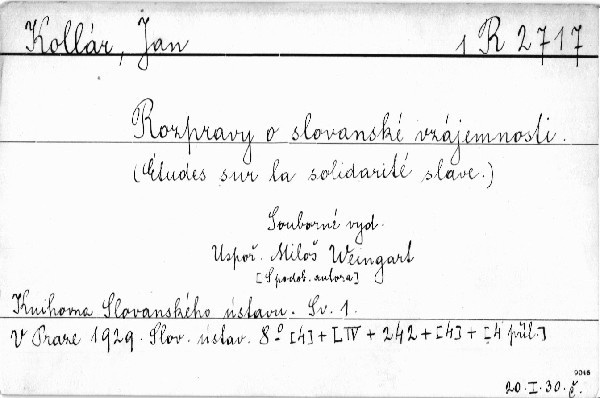 Kollár, Jan 1 R 2717
Rozpravy o slovanské vzájemnosti.
(Études sur la solidarité slave.)
Souborné vyd.
Uspoř. Miloš Weingart
[S podob. autora]
Knihovna Slovanského ústavu. Sv. 1.
V Praze 1929. Slov. ústav. 8° [4] + LIV + 242 + [4] + [4 příl.]
0046
20.I.30.Č.